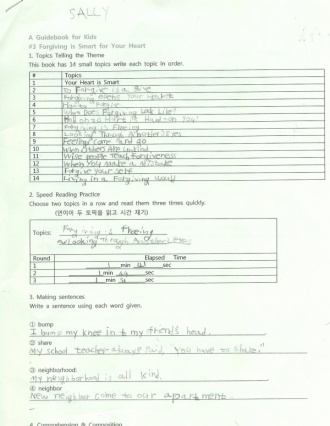 SALLY
A Guidebook for Kids
#3 Forgiving is Smart for Your Heart
1. Topics Telling the Theme
This book has 14 small topics write each topic in order.
# Topics
1 Your Heart is Smart
2 To Forgive is a
3 Forgiving
4 How to Forgive
5 What Does Forgiving Look Like?
6 is Hard on You!
7 Forgiving is Freeing
8 Looking Through Another's Eyes
9 Feelings Come and go
10 When others Are unkind
11 Wise people Teach Forgiveness
12 When You Make a Mistake
13 Forgive Your Self
14 Living in a Forgiving World
2. Speed Reading Practice
Choose two topics in a row and read them three times quickly.
(연이어 두 토픽을 읽고 시간 재기)
Topics: is freeing
Looking Through Another's Eyes
Round Elapsed Time
1 1 min sec
2 1 min sec
3 1 min sec
3. Making sentences
Write a sentence using each word given.
① bump
I bump my knee in to my friend's head.
② share
My school teacher always said, you have to share."
③ neighborhood:
My neighborhood is all kind.
④ neighbor
New neighbor come to our apartment
4. Comprehension & Composition